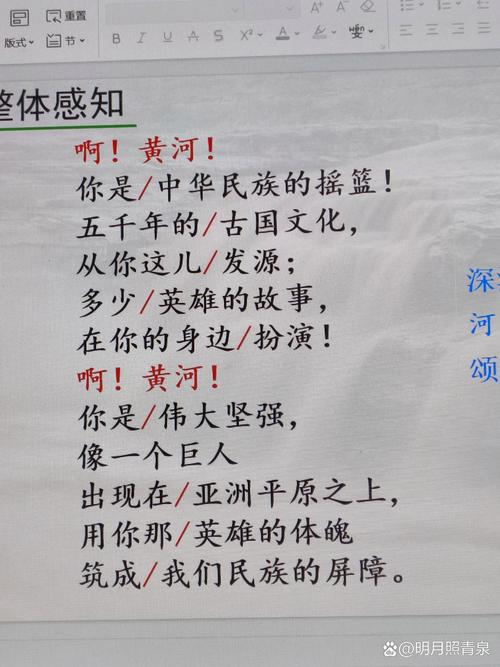 重置
版式
节
B I U A X² A 变
整体感知
啊！黄河！
你是/中华民族的摇篮！
五千年的/古国文化，
从你这儿/发源；
多少/英雄的故事，
在你的身边/扮演！
啊！黄河！
你是/伟大坚强，
像一个巨人
出现在/亚洲平原之上，
用你那/英雄的体魄
筑成/我们民族的屏障。
河
颂
明月照青泉